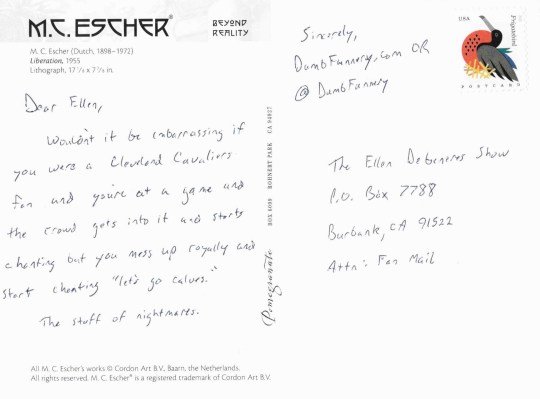 M.C. ESCHER®
BEYOND
REALITY
M. C. Escher (Dutch, 1898–1972)
Liberation, 1955
Lithograph, 17 1/8 x 7 7/8 in.
Dear Ellen,
Wouldn't it be embarrassing if
you were a Cleveland Cavaliers
fan and you're at a game and
the crowd gets into it and starts
chanting but you mess up royally and
start chanting "let's go calves."
The stuff of nightmares.
All M. C. Escher's works © Cordon Art B.V., Baarn, the Netherlands.
All rights reserved. M. C. Escher® is a registered trademark of Cordon Art B.V.
Pomegranate
BOX 6099 ROHNERT PARK CA 94927
Sincerely,
DumbFunnery.com OR
@DumbFunnery
USA
Frigatebird
POSTCARD
The Ellen DeGeneres Show
P.O. Box 7788
Burbank, CA 91522
Attn: Fan Mail